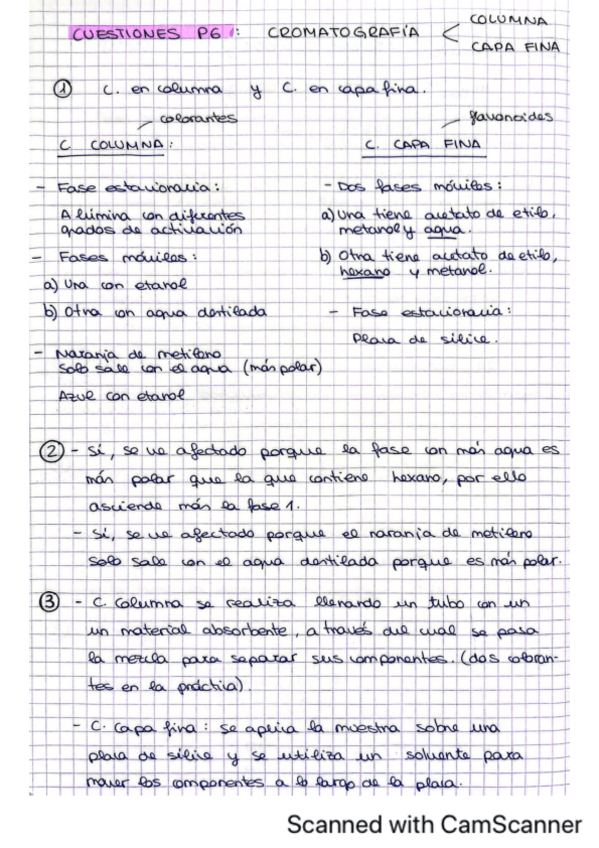 CUESTIONES P6: CROMATOGRAFÍA < COLUMNA
CAPA FINA
① C. en columna y C. en capa fina.
colorantes
C COLUMNA:
- Fase estacionaria:
Alúmina con diferentes
grados de activación
- Fases móviles:
a) Una con etanol
b) Otra con agua destilada
- Naranja de metilo
Solo sale con el agua (más polar)
Azul con etanol
flavonoides
C. CAPA FINA
- Dos fases móviles:
a) Una tiene acetato de etilo,
metanol y agua.
b) Otra tiene acetato de etilo,
hexano y metanol.
- Fase estacionaria:
Placa de sílice.
② - Sí, se ve afectado porque la fase con más agua es
más polar que la que contiene hexano, por ello
asciende más la fase 1.
- Sí, se ve afectado porque el naranja de metilo
solo sale con el agua destilada porque es más polar.
③ - C. Columna se realiza llenando un tubo con un
un material absorbente, a través del cual se pasa
la mezcla para separar sus componentes. (dos coloran-
tes en la práctica).
- C. Capa fina: se aplica la muestra sobre una
placa de sílice y se utiliza un solvente para
mover los componentes a lo largo de la placa.
Scanned with CamScanner